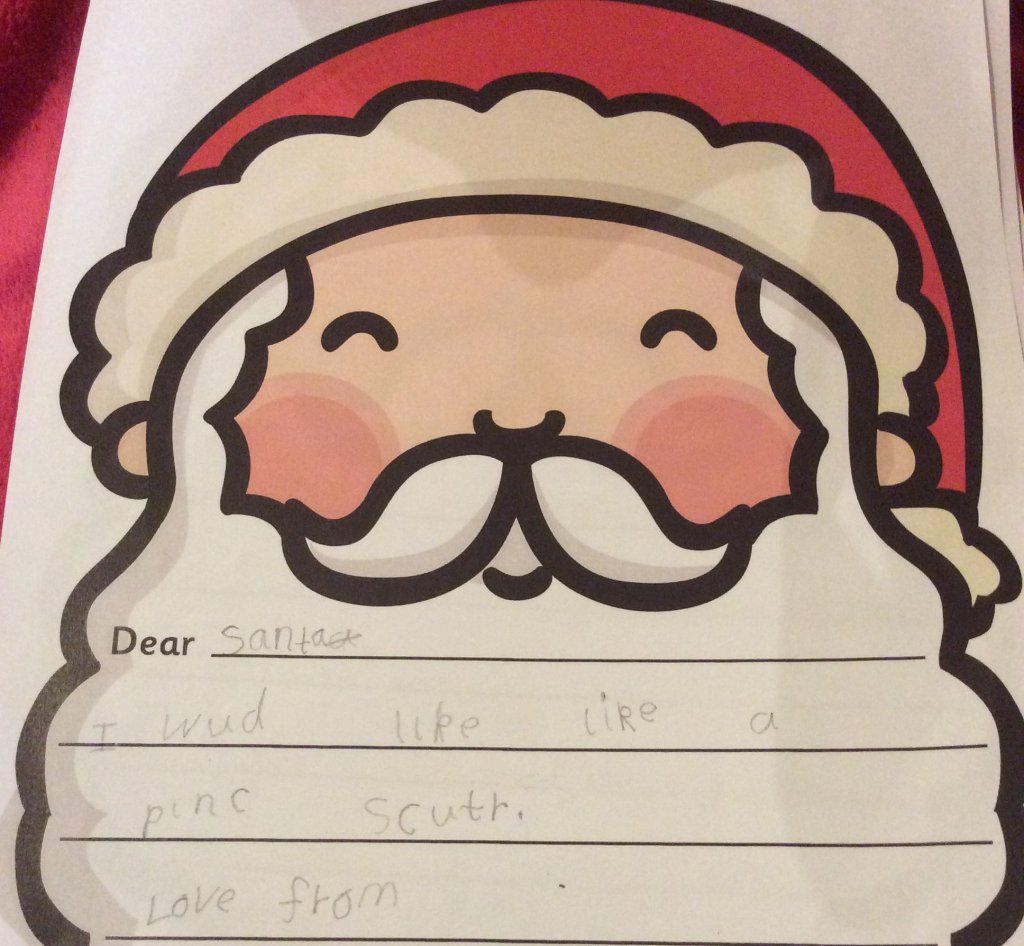 Dear Santa
I wud like like a
pinc scutr.
Love from